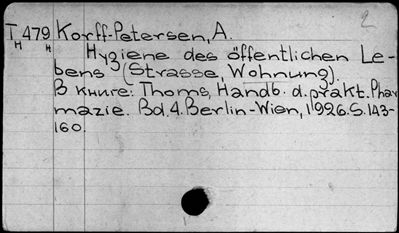 2
T 479 Korff-Petersen, A.
H H
Hygiene des öffentlichen Le-
bens (Strasse, Wohnung).
В книге: Thoms, Handb. d. präkt. Phar
mazie. Bd. 4. Berlin-Wien, 1926. S. 143-
160.